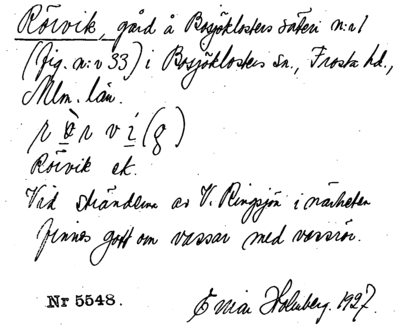 Rörvik, gård å Bosjöklosters säteri n:r 1
(fig. n:r 33) i Bosjöklosters sn., Frosta hd.,
Mlm. län.
r ö̀ r v i (g)
Rörvik ek.
Vid stränderna av V. Ringsjön i närheten
finnes gott om vassar med vassrör.
Nr 5548. Einar Holmberg. 1927.